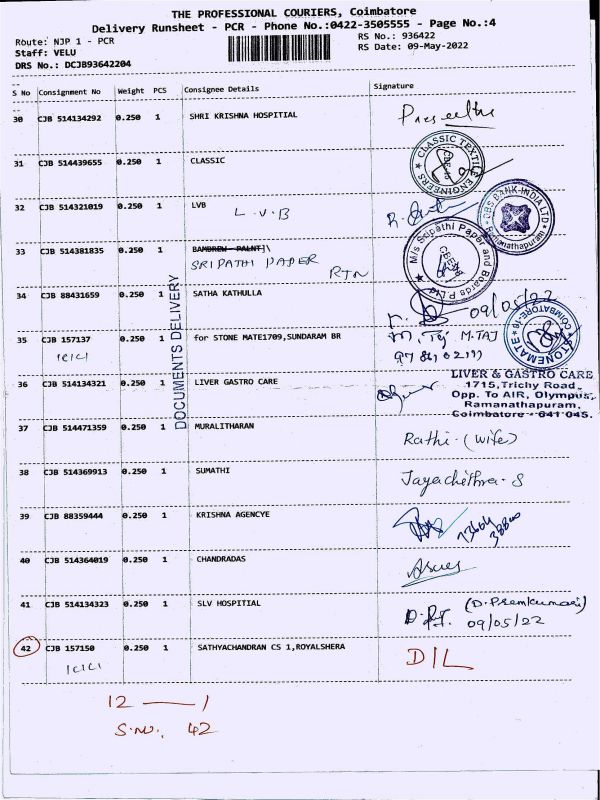 THE PROFESSIONAL COURIERS, Coimbatore
Delivery Runsheet - PCR - Phone No.:0422-3505555 - Page No.:4
Route: NJP 1 - PCR
Staff: VELU
DRS No.: DCJB93642204
RS No.: 936422
RS Date: 09-May-2022
S No Consignment No Weight PCS Consignee Details Signature
30 CJB 514134292 0.250 1 SHRI KRISHNA HOSPITIAL
31 CJB 514439655 0.250 1 CLASSIC
CLASSIC TEXTILE ENGINEERS
32 CJB 514321019 0.250 1 LVB
L.V.B
DBS BANK INDIA LTD
Ramanathapuram
33 CJB 514381835 0.250 1 BAMBREW PALNT]\
SRIPATHI PAPER
RTN
M/s Sripathi Paper and Boards P.Ltd
34 CJB 88431659 0.250 1 SATHA KATHULLA
09/05/22
35 CJB 157137 0.250 1 for STONE MATE1709,SUNDARAM BR
ICICI
M. Taj M.TAJ
STONEMATE COIMBATORE-18
DOCUMENTS DELIVERY
36 CJB 514134321 0.250 1 LIVER GASTRO CARE
LIVER & GASTRO CARE
1715,Trichy Road,
Opp. To AIR, Olympus,
Ramanathapuram,
Coimbatore - 641 045.
37 CJB 514471359 0.250 1 MURALITHARAN
Rathi-(wife)
38 CJB 514369913 0.250 1 SUMATHI
Jayachithra-S
39 CJB 88359444 0.250 1 KRISHNA AGENCYE
40 CJB 514364019 0.250 1 CHANDRADAS
41 CJB 514134323 0.250 1 SLV HOSPITIAL
(D.Premkumari)
09/05/22
42 CJB 157150 0.250 1 SATHYACHANDRAN CS 1,ROYALSHERA
ICICI
D/L
12 — 1
S.NO: 42